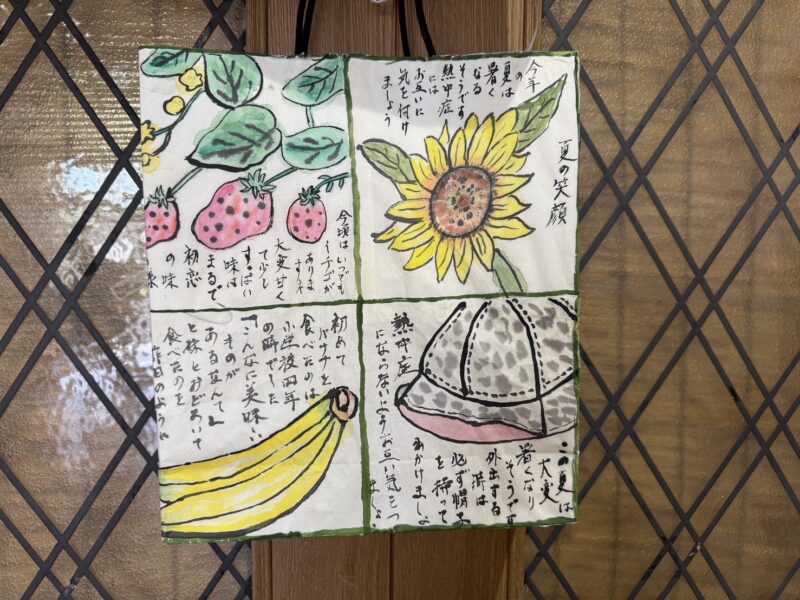 今年
の
夏は
暑く
なる
そうです
熱中症
には
お互いに
気を付け
ましょう
夏の笑顔
今頃は いつでも
イチゴが
あります
大変甘く
て少し
すっぱい
味は
まるで
初恋
の味
初めて
バナナを
食べたのは
小学校四年
の時でした
「こんなに美味しい
ものが
あるなんて」
と妹とおどろいて
食べたのを
昨日のように
熱中症
にならないようお互い気をつ
この夏は
大変
暑くなり
そうです
外出する
時は
必ず帽子
を持って
おかけましょ
ましょう